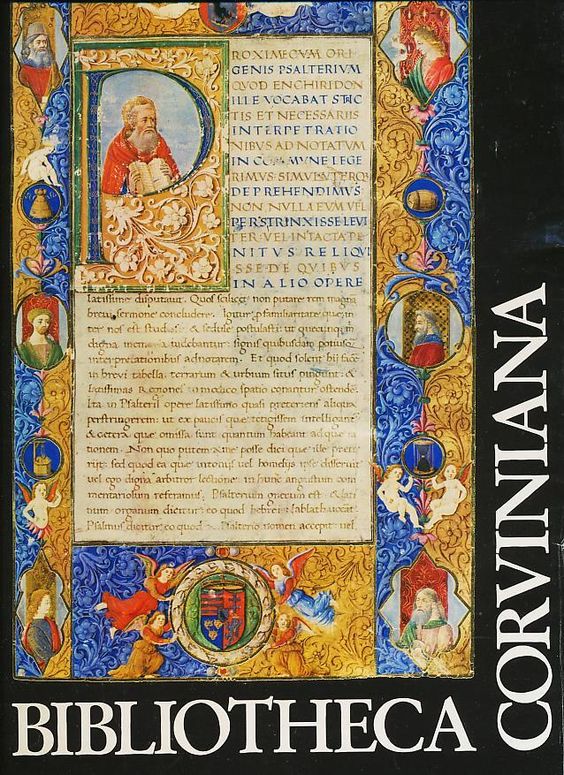 ROXIME CVM ORI
GENIS PSALTERIVM
QVOD ENCHIRIDON
ILLE VOCABAT STRIC
TIS ET NECESSARIIS
INTERPETRATIO
NIBVS ADNOTATVM
IN COMMVNE LEGE
RIMVS: SIMVL VTERQ
DEPREHENDIMVS
NON NVLLA EVM VEL
PERSTRINXISSE LEVI
TER: VEL INTACTA PE
NITVS RELIQV
SSE DE QVIBVS
IN ALIO OPERE
latissime disputauit. Quos scilicet non putare rem magna
breui sermone concludere. Igitur familiaritate que in
ter nos est studiose & sedule postulasti: ut quecunq; in
digna memoria uidebantur: signis quibusdam potius
interpretationibus adnotarem. Et quod solent hi facere
in breui tabella: terrarum & urbium situs pingunt: &
latissimas Regiones in modico spatio conantur ostendere
Ita in Psalterii opere latissimo quasi preteriens aliqua
perstringerem: ut ex paucis que tetigissem intelligantur
& cetera que omissa sunt quantum habeant ad que ra
tionem. Non quo putem a me posse dici que ille prete
riit: sed quod ea que in tomis uel homeliis ipse disseruit
uel ego digna arbitror lectione: in hunc angustum com
mentariolum referamus. Psalterium grecum est & lati
num organum dicitur: eo quod hebrei: Nabla uocant
Psalmus dicitur eo quod a Psalterio nomen accepit: uel
BIBLIOTHECA
CORVINIANA